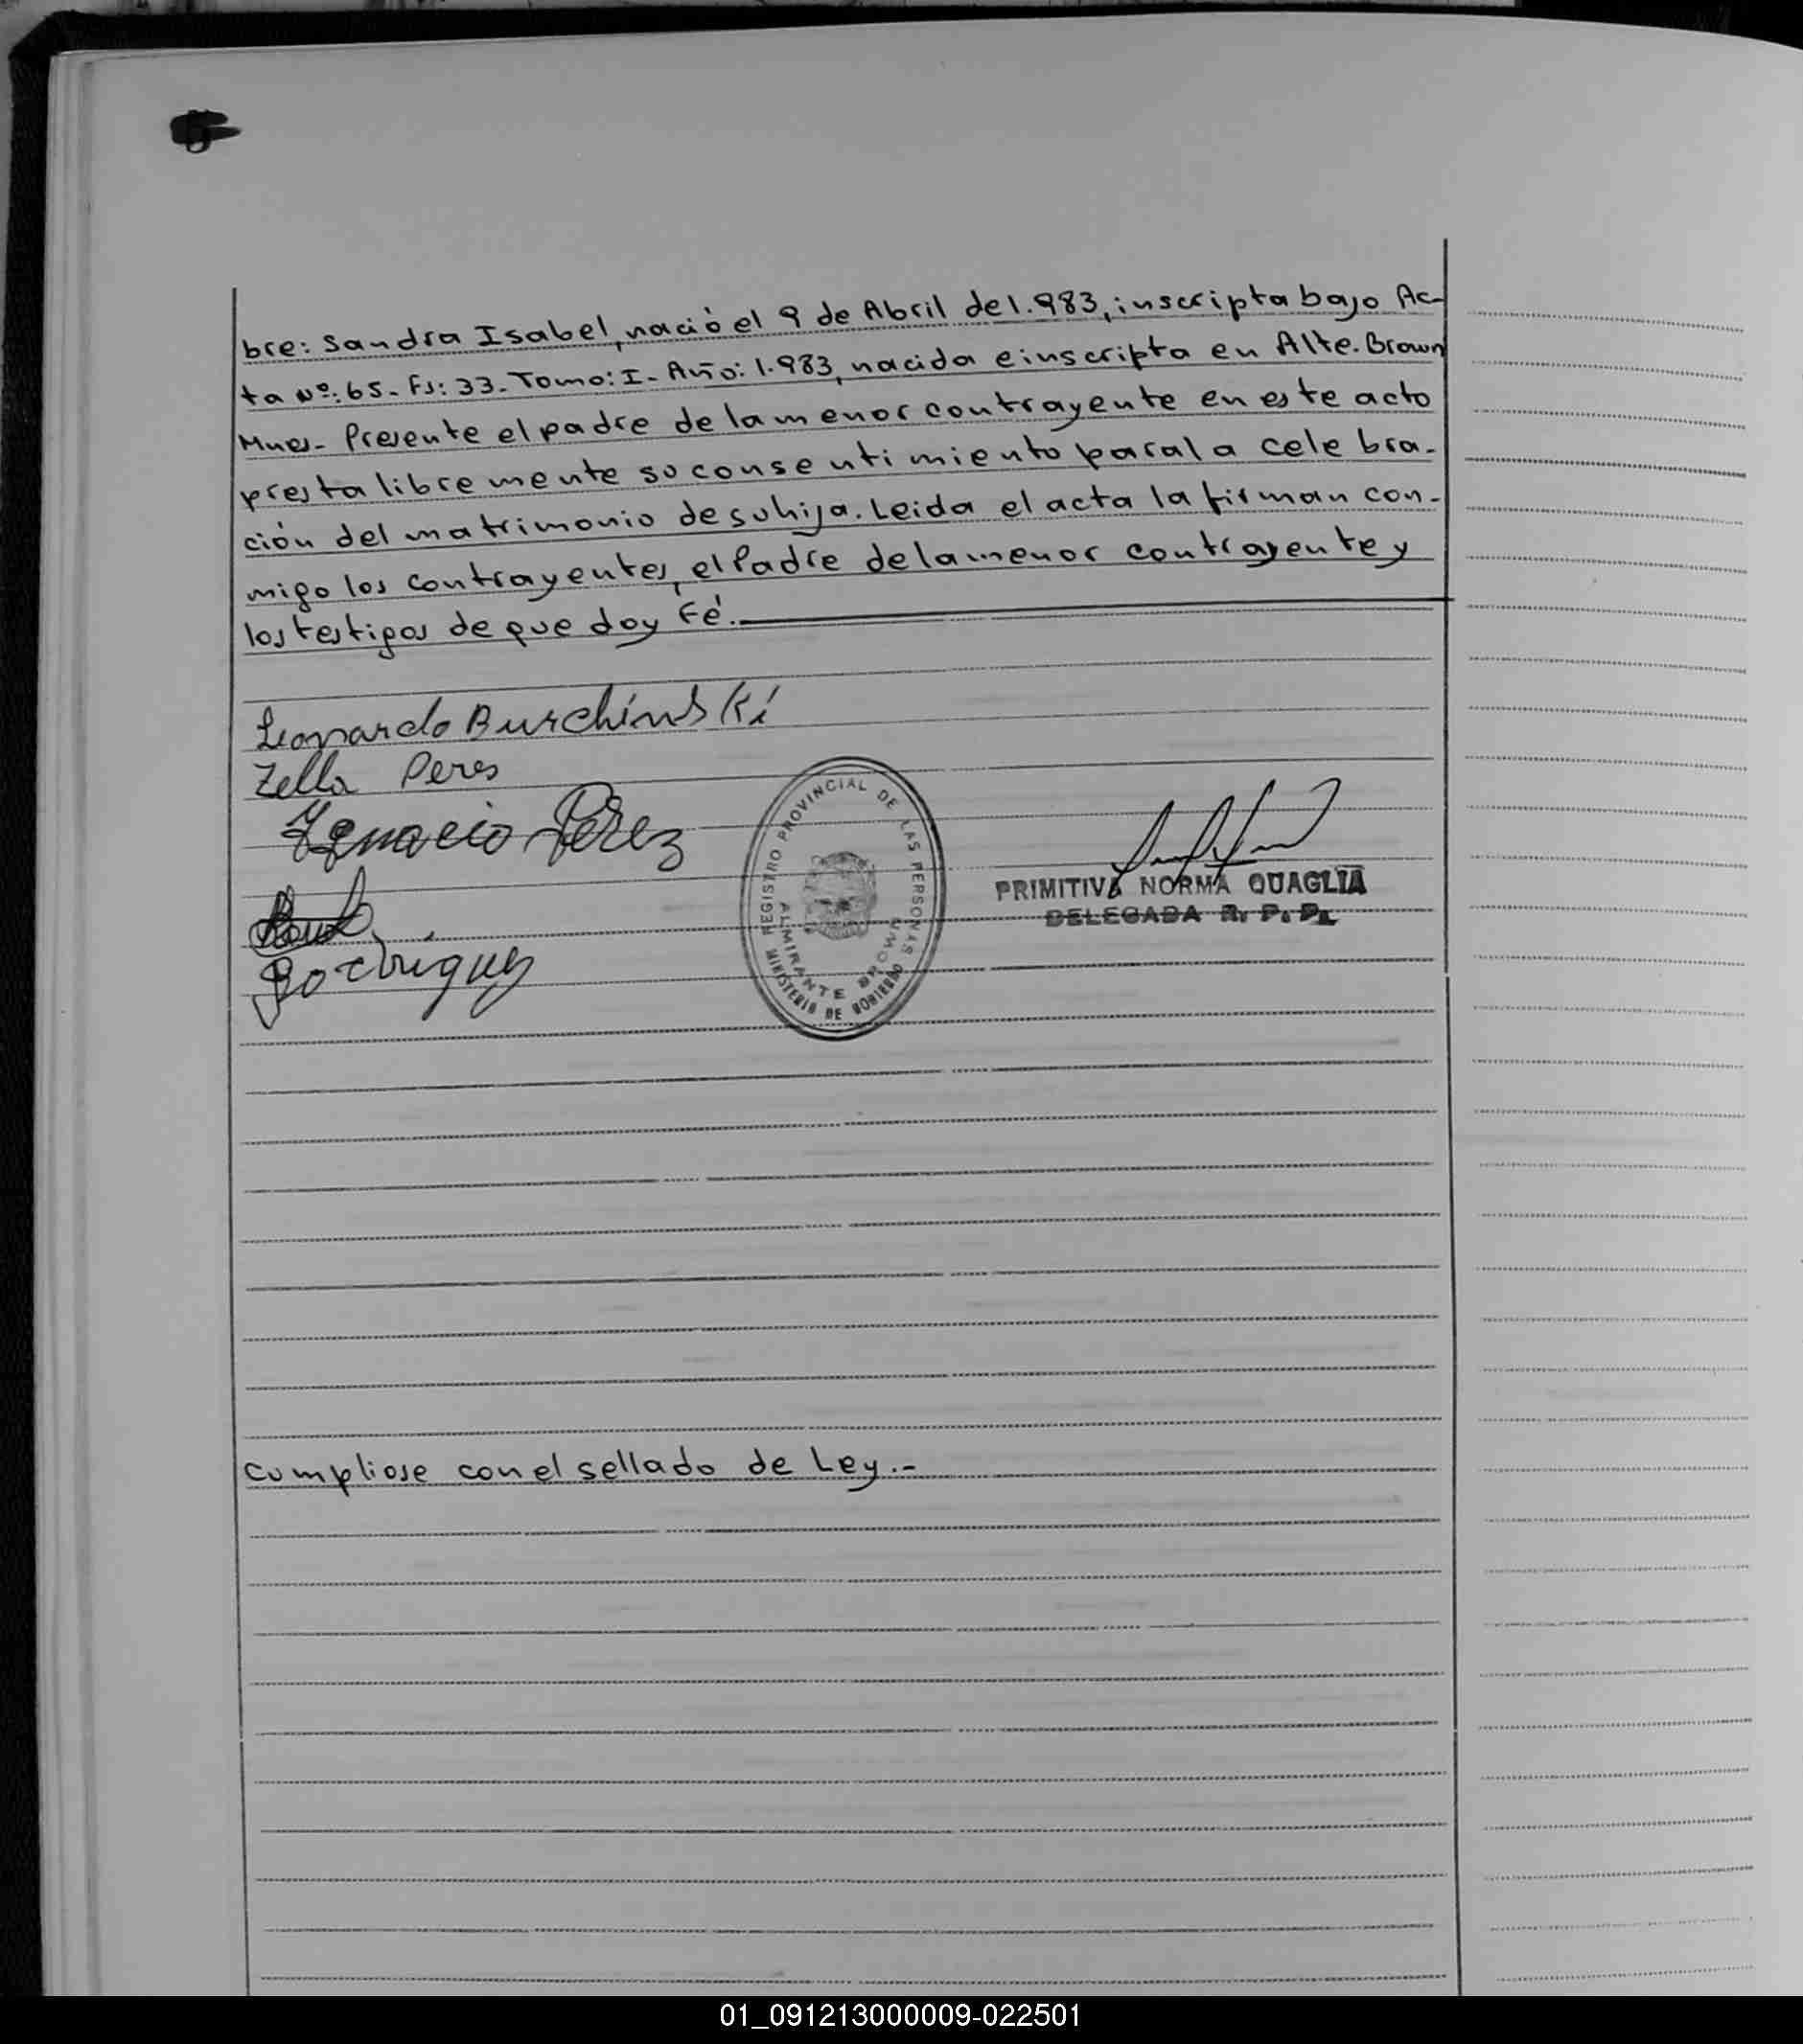 bre: Sandra Isabel, nació el 9 de Abril de 1.983, inscripta bajo Ac-
ta Nº: 65- Fs: 33- Tomo: I- Año: 1.983, nacida e inscripta en Alte. Brown
Mnes- Presente el padre de la menor contrayente en este acto
presta libremente su consentimiento para la celebra-
ción del matrimonio de su hija. Leida el acta la firman con-
migo los contrayentes, el Padre de la menor contrayente y
los testigos de que doy Fé.
Leonardo Burchinski
Zella Peres
Ignacio Pérez
Rodriguez
REGISTRO PROVINCIAL DE LAS PERSONAS
ALMIRANTE BROWN
MINISTERIO DE GOBIERNO
PRIMITIVA NORMA QUAGLIA
DELEGADA R. P. P.
Cumpliose con el sellado de Ley.-
01_091213000009-022501